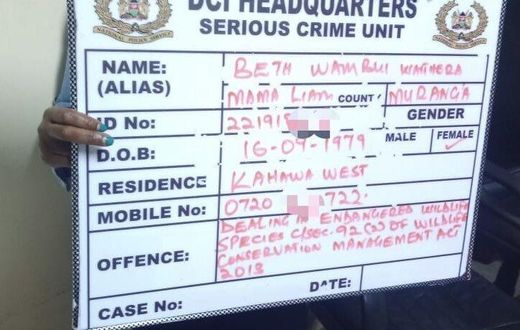 DCI HEADQUARTERS
SERIOUS CRIME UNIT
NAME: BETH WAMBUI
(ALIAS) MAMA LIAM COUNT MURANGA
ID No: 221915 GENDER
D.O.B: 16-09-1979 MALE FEMALE
RESIDENCE KAHAWA WEST
MOBILE No: 0720 722
DEALING IN ENDANGERED WILDLIFE
SPECIES C/SEC. 92 (2) OF WILDLIFE
OFFENCE: CONSERVATION MANAGEMENT ACT
2013
DATE:
CASE No: